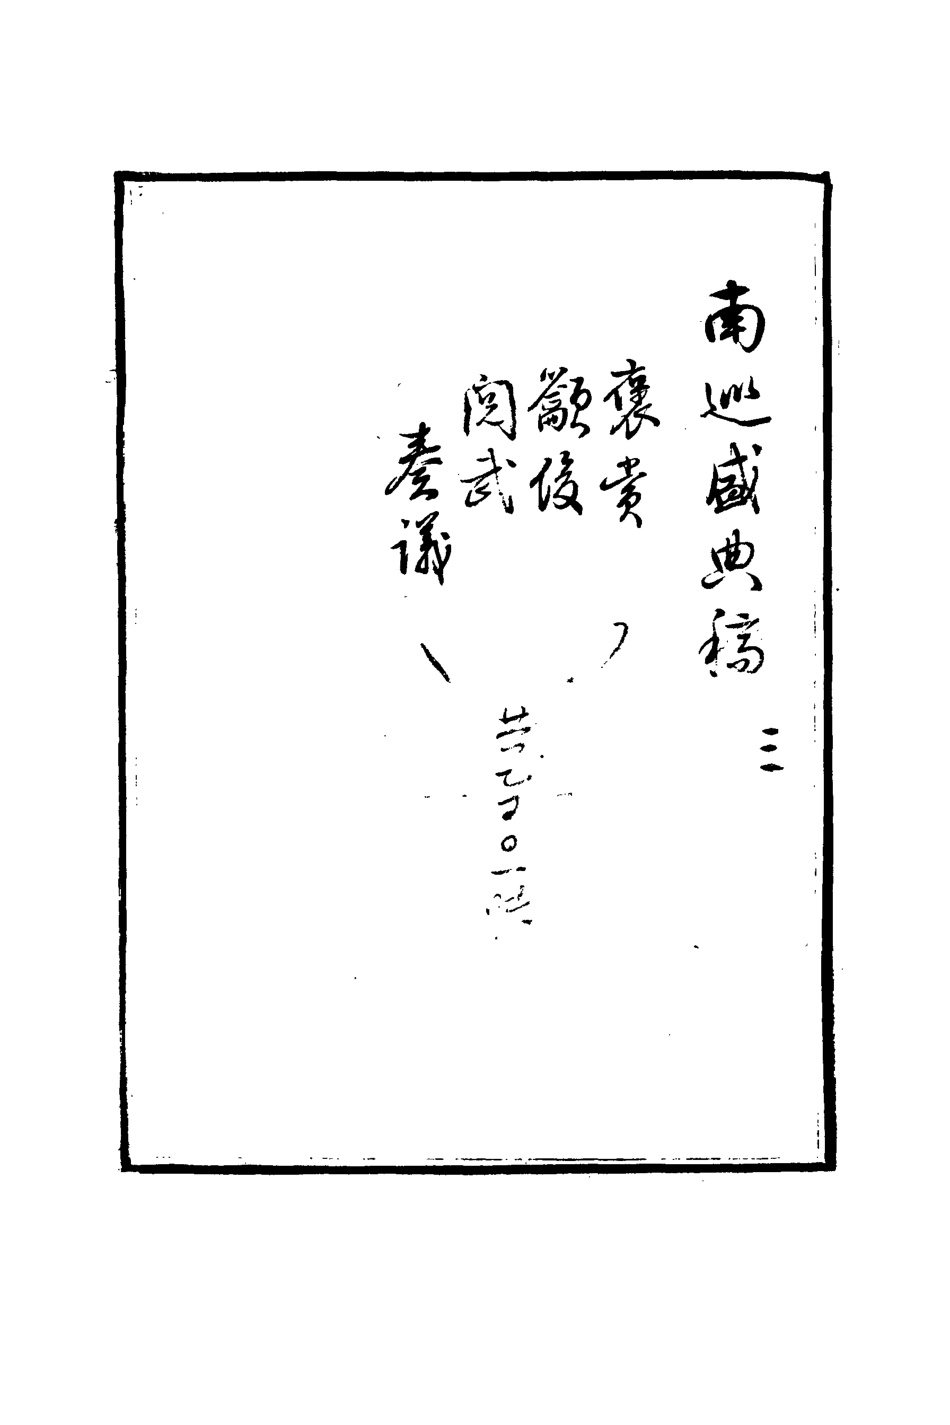 南巡盛典稿
三
褒賞
籲俊
閱武
奏議